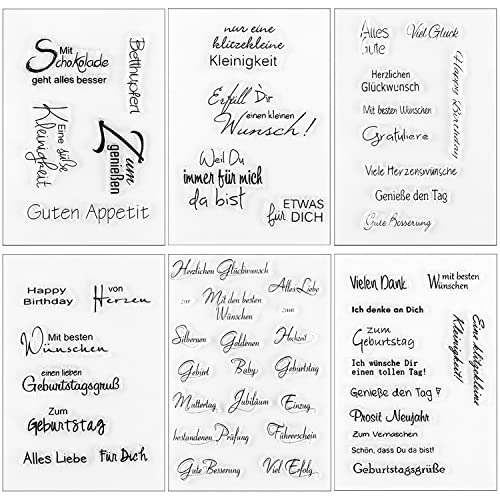 Mit
Schokolade
geht alles besser
Betthupferl
Eine süße
Kleinigkeit
Zum
genießen
Guten Appetit
nur eine
klitzekleine
Kleinigkeit
Erfüll Dir
einen kleinen
Wunsch!
Weil Du
immer für mich
da bist
ETWAS
für DICH
Alles
Gute
Viel Glück
Happy Birthday
Herzlichen
Glückwunsch
Mit besten Wünschen
Gratuliere
Viele Herzenswünsche
Genieße den Tag
Gute Besserung
Happy
Birthday
von
Herzen
Mit besten
Wünschen
einen lieben
Geburtstagsgruß
Zum
Geburtstag
Alles Liebe
Für Dich
Herzlichen Glückwunsch
Alles Liebe
zur
Mit den besten
Wünschen
zum
Silbernen
Goldenen
Hochzeit
Geburt
Baby
Geburtstag
Muttertag
Jubiläum
Einzug
bestandenen
Prüfung
Führerschein
Gute Besserung
Viel Erfolg
Vielen Dank
mit besten
Wünschen
Ich denke an Dich
zum
Geburtstag
Eine klitzekleine
Kleinigkeit!
Ich wünsche Dir
einen tollen Tag!
Genieße den Tag !
Prosit Neujahr
Zum Vernaschen
Schön, dass Du da bist!
Geburtstagsgrüße